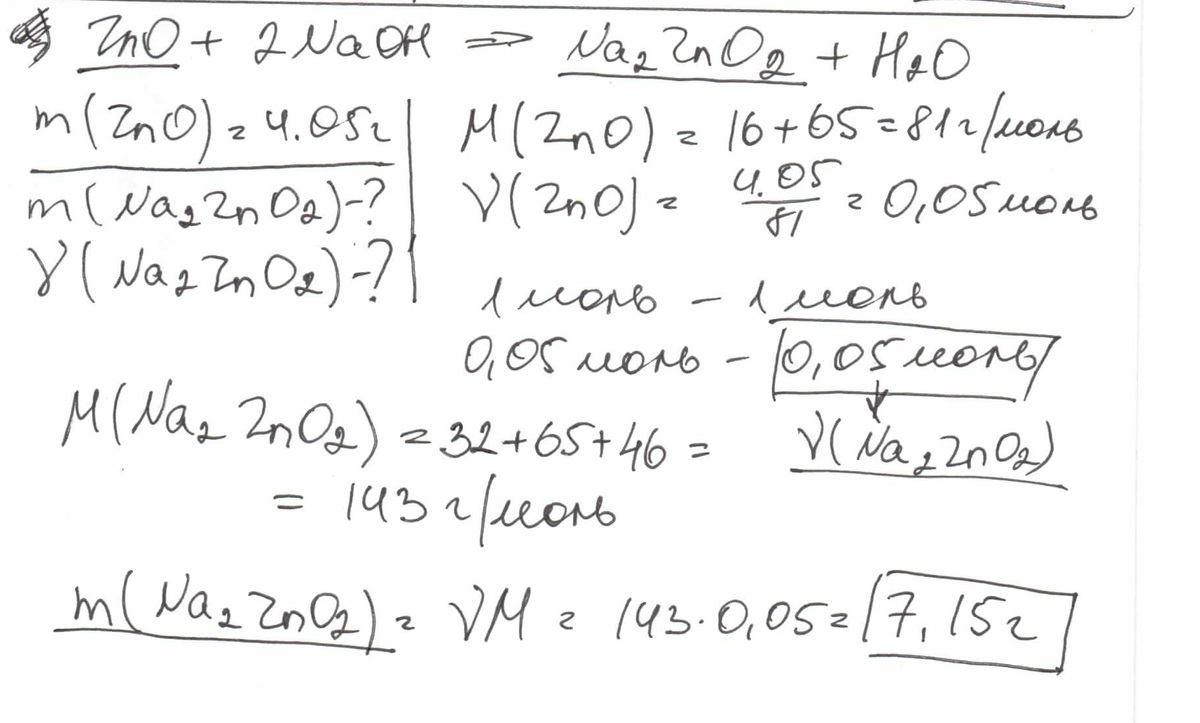 ZnO + 2NaOH => Na2ZnO2 + H2O
m(ZnO) = 4.05г
m(Na2ZnO2)-?
ν(Na2ZnO2)-?
M(ZnO) = 16+65=81г/моль
ν(ZnO) = 4.05/81 = 0,05моль
1 моль - 1 моль
0,05 моль - 0,05 моль
ν(Na2ZnO2)
M(Na2ZnO2) = 32+65+46 =
= 143 г/моль
m(Na2ZnO2) = νM = 143·0,05= 7,15г